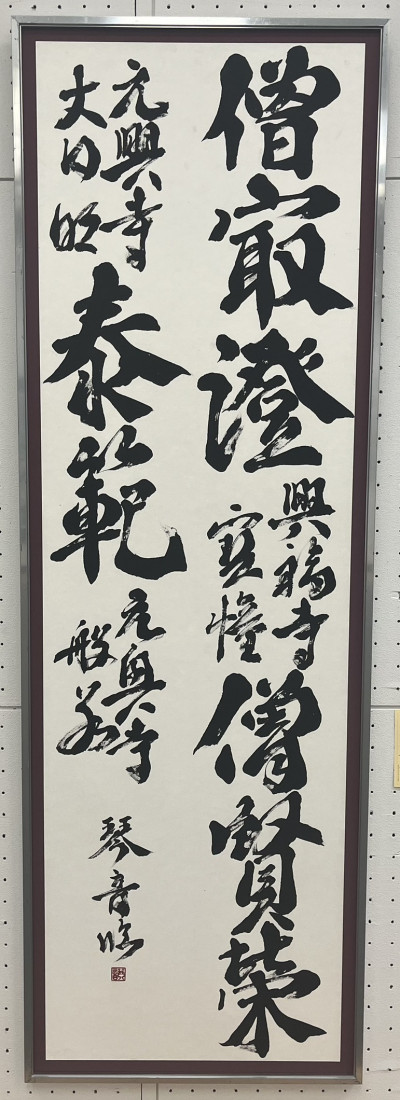 僧最澄
興福寺
寶幢
僧賢榮
元興寺
大日
泰範
元興寺
般若
琴音臨